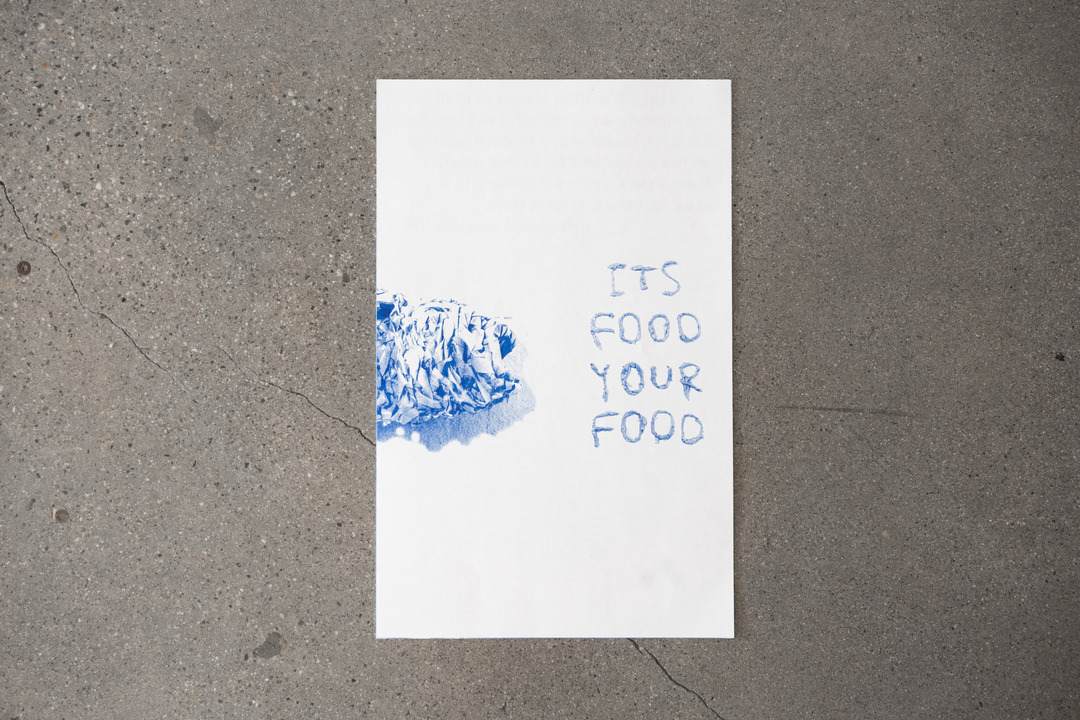 ITS
FOOD
YOUR
FOOD